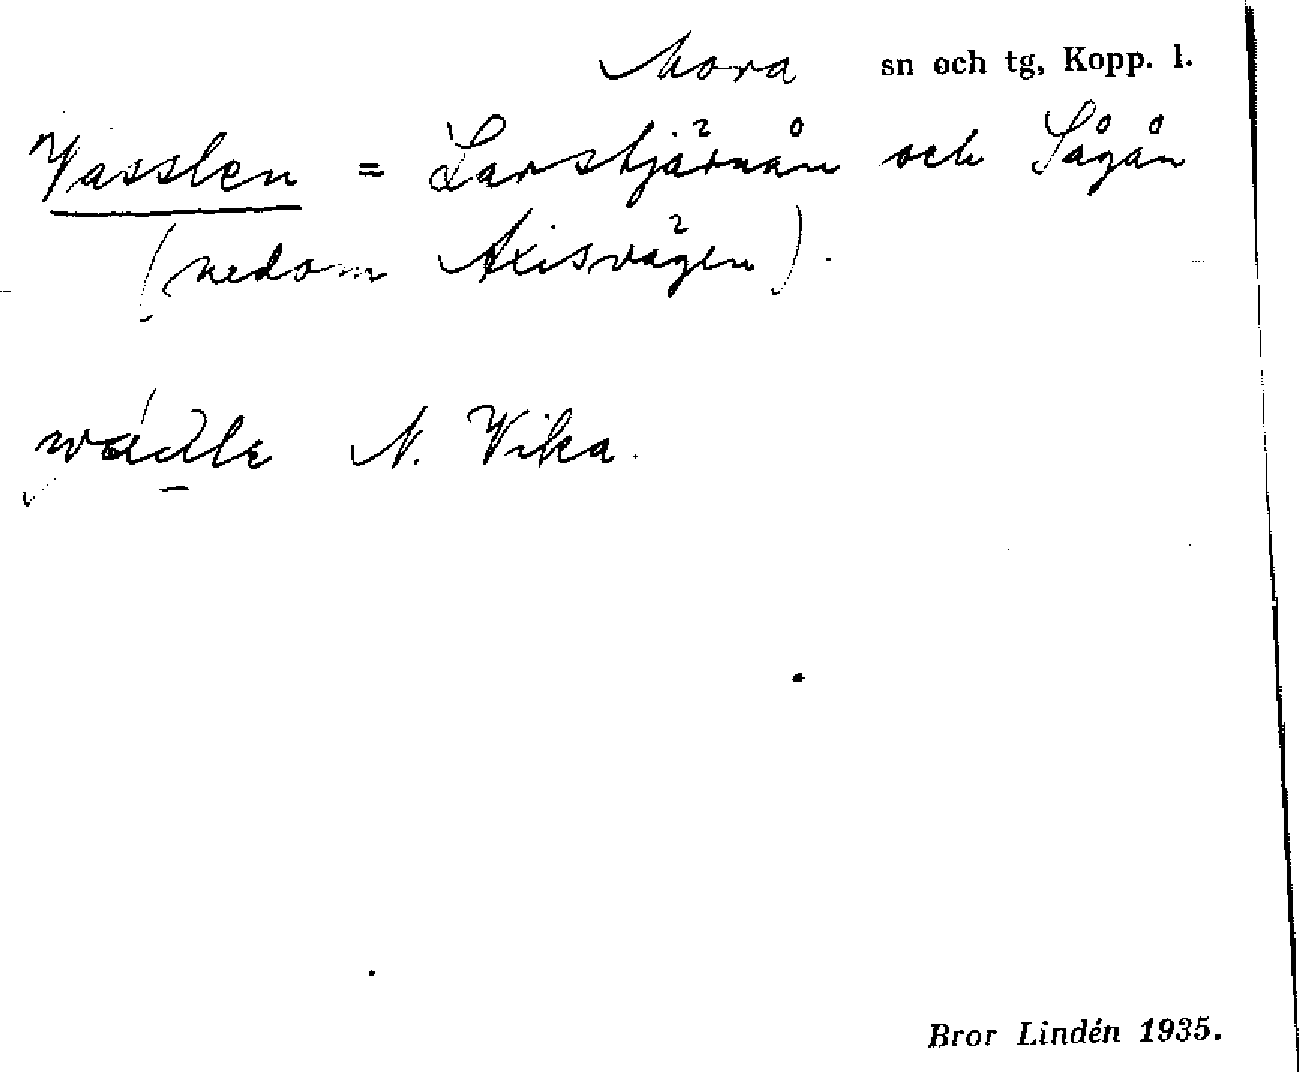 Mora sn och tg, Kopp. l.
Vasslen = Larstjärnån och Sågån
(nedom Axisvägen).
wádle N. Wika.
Bror Lindén 1935.